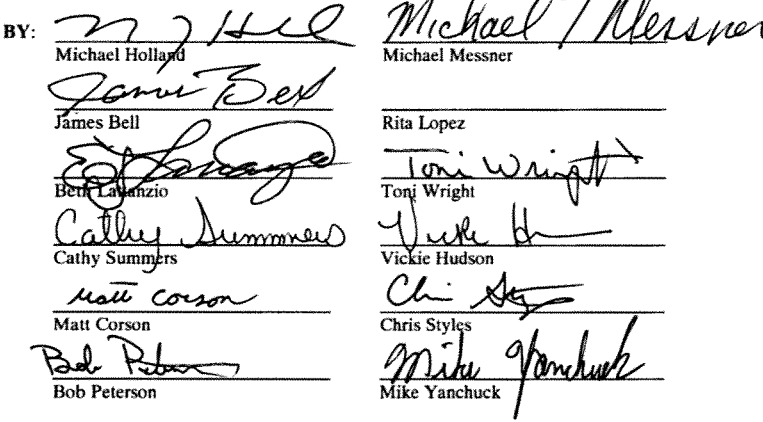 BY:
Michael Holland
James Bell
Beth Lavanzio
Cathy Summers
Cathy Summers
Matt Corson
Matt Corson
Bob Peterson
Bob Peterson
Michael J Messner
Michael Messner
Rita Lopez
Toni Wright
Toni Wright
Vickie Hudson
Chris Styles
Mike Yanchuck
Mike Yanchuck